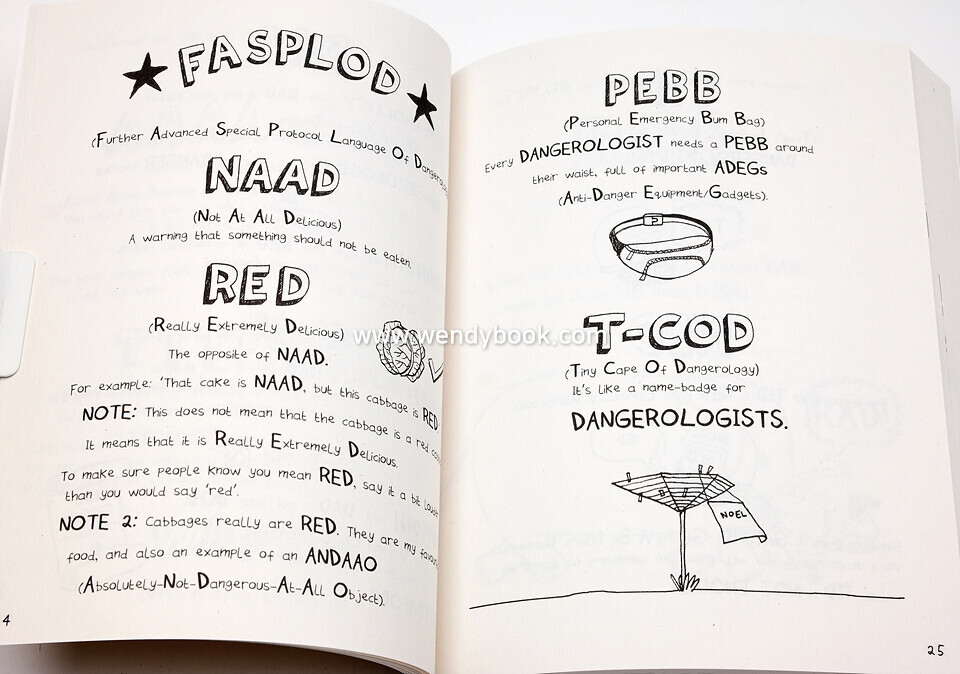 FASPLOD
(Further Advanced Special Protocol Language Of
NAAD
(Not At All Delicious)
A warning that something should not be eaten.
RED
(Really Extremely Delicious)
The opposite of NAAD.
For example: 'That cake is NAAD, but this cabbage is RED
NOTE: This does not mean that the cabbage is a red
It means that it is Really Extremely Delicious.
To make sure people know you mean RED, say it a bit
than you would say 'red'.
NOTE 2: Cabbages really are RED. They are my
food, and also an example of an ANDAAO
(Absolutely-Not-Dangerous-At-All Object).
4
PEBB
(Personal Emergency Bum Bag)
Every DANGEROLOGIST needs a PEBB around
their waist, full of important ADEGs
(Anti-Danger Equipment/Gadgets).
www.wendybook.com
T-COD
(Tiny Cape Of Dangerology)
It's like a name-badge for
DANGEROLOGISTS.
NOEL
25